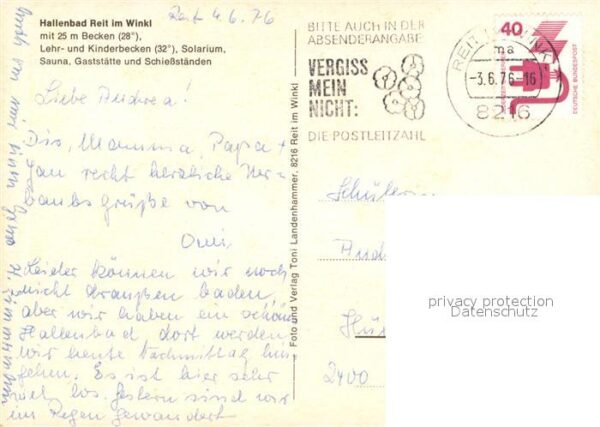 Hallenbad Reit im Winkl
mit 25 m Becken (28°),
Lehr- und Kinderbecken (32°), Solarium,
Sauna, Gaststätte und Schießständen
4.6.76
Liebe Andrea!
Dir, Mamma, Papa +
Jan recht herzliche Ur-
laubsgrüße von
Omi,
Leider können wir noch
nicht draußen baden,
aber wir haben ein schön
Hallenbad, dort werden
wir heute Nachmittag hin
gehen. Es ist hier sehr
viel los. Gestern sind wir
im Regen gewandert
Auch von mir
Foto und Verlag Toni Landenhammer, 8216 Reit im Winkl
BITTE AUCH IN DER
ABSENDERANGABE
VERGISS
MEIN
NICHT:
DIE POSTLEITZAHL
REIT IM WINKL
ma
-3.6.76-16
8216
40
DEUTSCHE BUNDESPOST
Schülerin
2400
privacy protection
Datenschutz